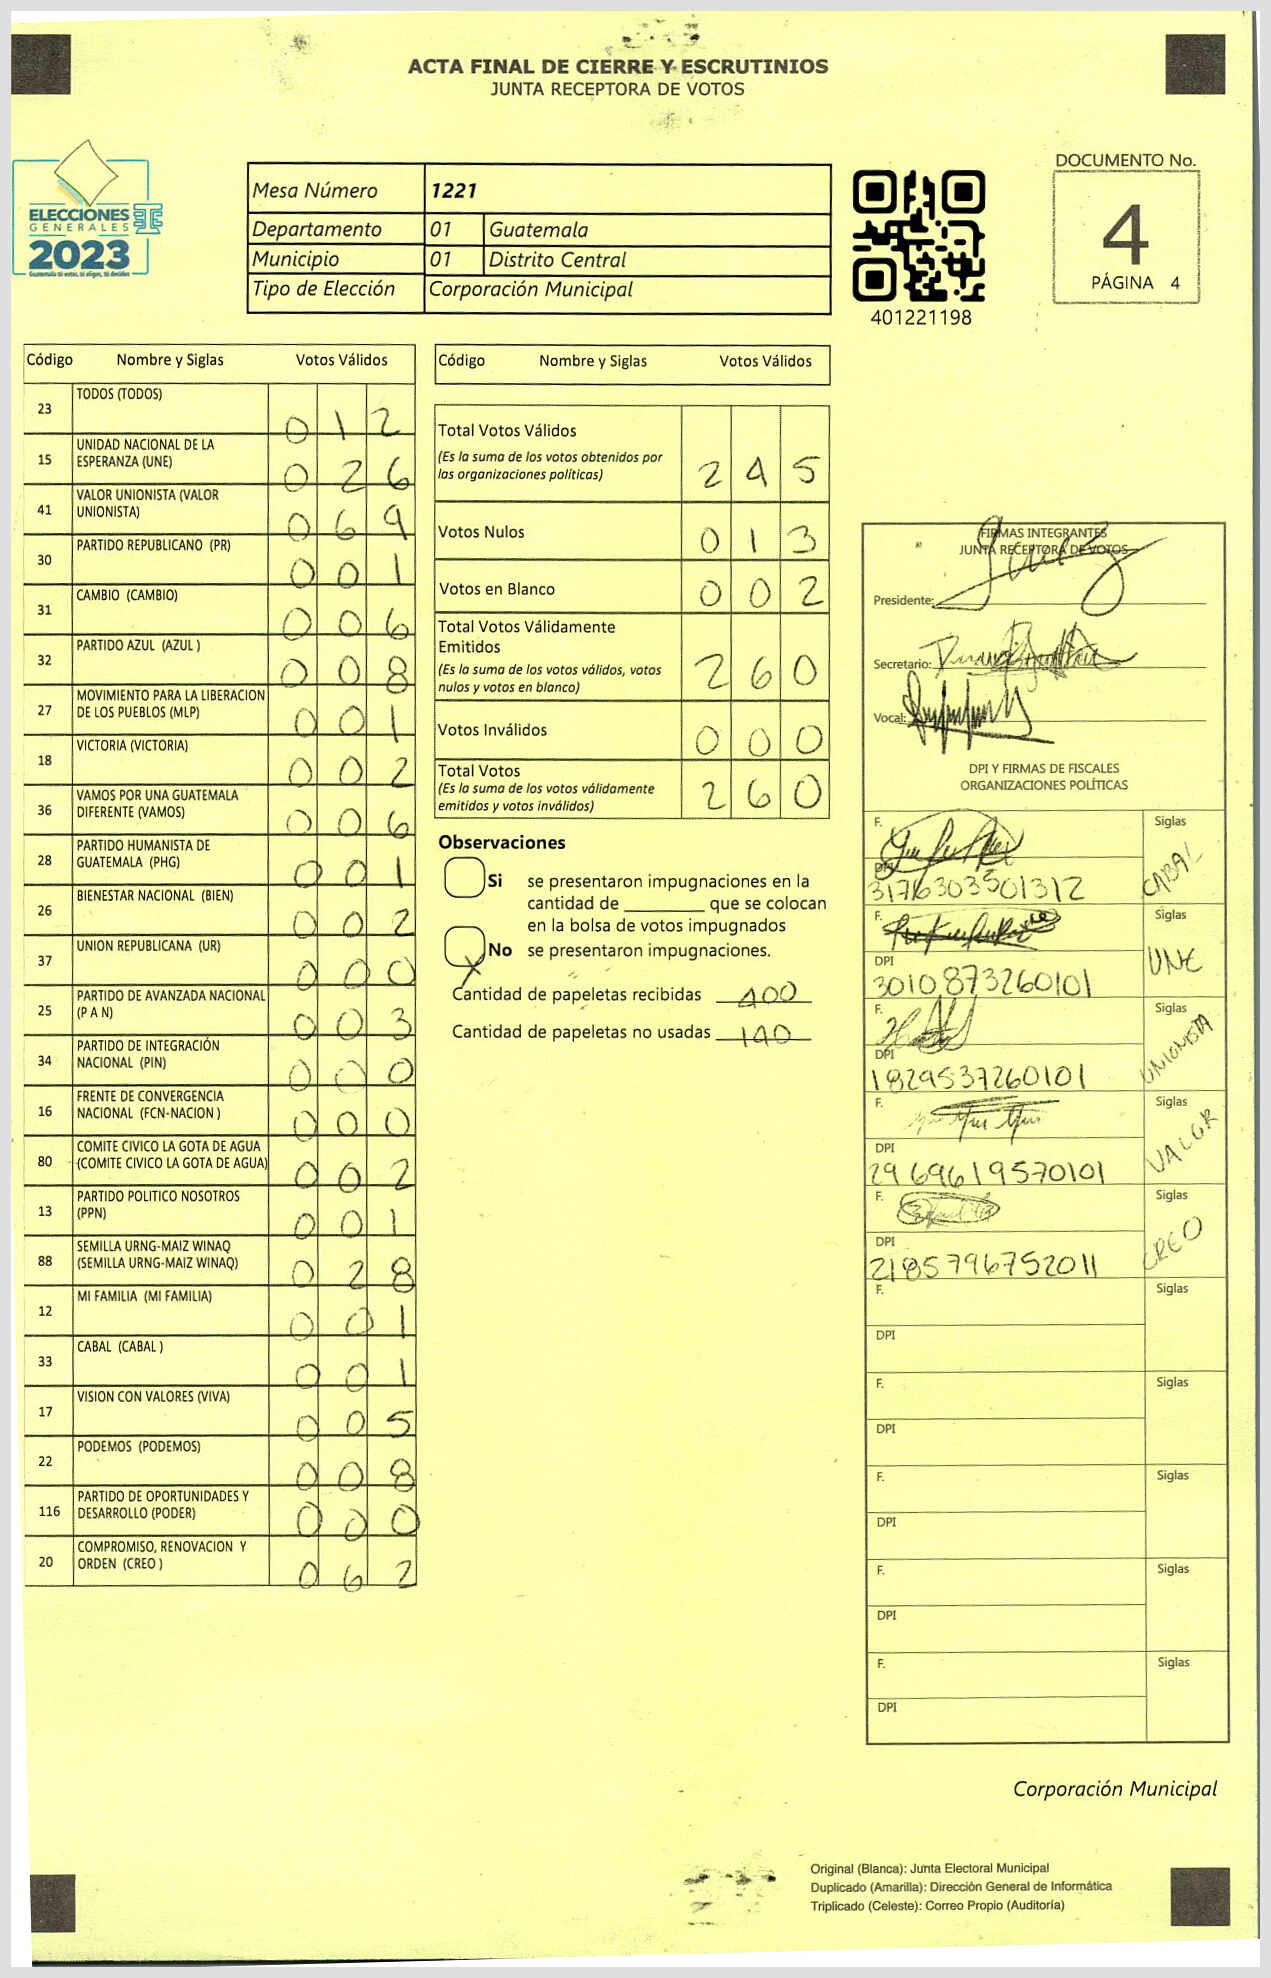 ACTA FINAL DE CIERRE Y ESCRUTINIOS
JUNTA RECEPTORA DE VOTOS
ELECCIONES
GENERALES
2023
Guatemala tú votas, tú eliges, tú decides
Mesa Número 1221
Departamento 01 Guatemala
Municipio 01 Distrito Central
Tipo de Elección Corporación Municipal
401221198
DOCUMENTO No.
4
PÁGINA 4
Código Nombre y Siglas Votos Válidos
23 TODOS (TODOS) 0 1 2
15 UNIDAD NACIONAL DE LA
ESPERANZA (UNE) 0 2 6
41 VALOR UNIONISTA (VALOR
UNIONISTA) 0 6 9
30 PARTIDO REPUBLICANO (PR) 0 0 1
31 CAMBIO (CAMBIO) 0 0 6
32 PARTIDO AZUL (AZUL ) 0 0 8
27 MOVIMIENTO PARA LA LIBERACION
DE LOS PUEBLOS (MLP) 0 0 1
18 VICTORIA (VICTORIA) 0 0 2
36 VAMOS POR UNA GUATEMALA
DIFERENTE (VAMOS) 0 0 6
28 PARTIDO HUMANISTA DE
GUATEMALA (PHG) 0 0 1
26 BIENESTAR NACIONAL (BIEN) 0 0 2
37 UNION REPUBLICANA (UR) 0 0 0
25 PARTIDO DE AVANZADA NACIONAL
(P A N) 0 0 3
34 PARTIDO DE INTEGRACIÓN
NACIONAL (PIN) 0 0 0
16 FRENTE DE CONVERGENCIA
NACIONAL (FCN-NACION ) 0 0 0
80 COMITE CIVICO LA GOTA DE AGUA
(COMITE CIVICO LA GOTA DE AGUA) 0 0 2
13 PARTIDO POLITICO NOSOTROS
(PPN) 0 0 1
88 SEMILLA URNG-MAIZ WINAQ
(SEMILLA URNG-MAIZ WINAQ) 0 2 8
12 MI FAMILIA (MI FAMILIA) 0 0 1
33 CABAL (CABAL ) 0 0 1
17 VISION CON VALORES (VIVA) 0 0 5
22 PODEMOS (PODEMOS) 0 0 8
116 PARTIDO DE OPORTUNIDADES Y
DESARROLLO (PODER) 0 0 0
20 COMPROMISO, RENOVACION Y
ORDEN (CREO ) 0 6 2
Código Nombre y Siglas Votos Válidos
Total Votos Válidos
(Es la suma de los votos obtenidos por
las organizaciones políticas) 2 4 5
Votos Nulos 0 1 3
Votos en Blanco 0 0 2
Total Votos Válidamente
Emitidos
(Es la suma de los votos válidos, votos
nulos y votos en blanco) 2 6 0
Votos Inválidos 0 0 0
Total Votos
(Es la suma de los votos válidamente
emitidos y votos inválidos) 2 6 0
Observaciones
Si se presentaron impugnaciones en la
cantidad de ________ que se colocan
en la bolsa de votos impugnados
X No se presentaron impugnaciones.
Cantidad de papeletas recibidas 400
Cantidad de papeletas no usadas 140
FIRMAS INTEGRANTES
JUNTA RECEPTORA DE VOTOS
Presidente:
Secretario:
Vocal:
DPI Y FIRMAS DE FISCALES
ORGANIZACIONES POLÍTICAS
F. Siglas
DPI CABAL
3176303501312
F. Siglas
DPI UNE
3010873260101
F. Siglas
DPI UNIONISTA
1829537260101
F. Siglas
DPI VALOR
2969619570101
F. Siglas
DPI CREO
2185796752011
F. Siglas
DPI
F. Siglas
DPI
F. Siglas
DPI
F. Siglas
DPI
F. Siglas
DPI
Corporación Municipal
Original (Blanca): Junta Electoral Municipal
Duplicado (Amarilla): Dirección General de Informática
Triplicado (Celeste): Correo Propio (Auditoría)